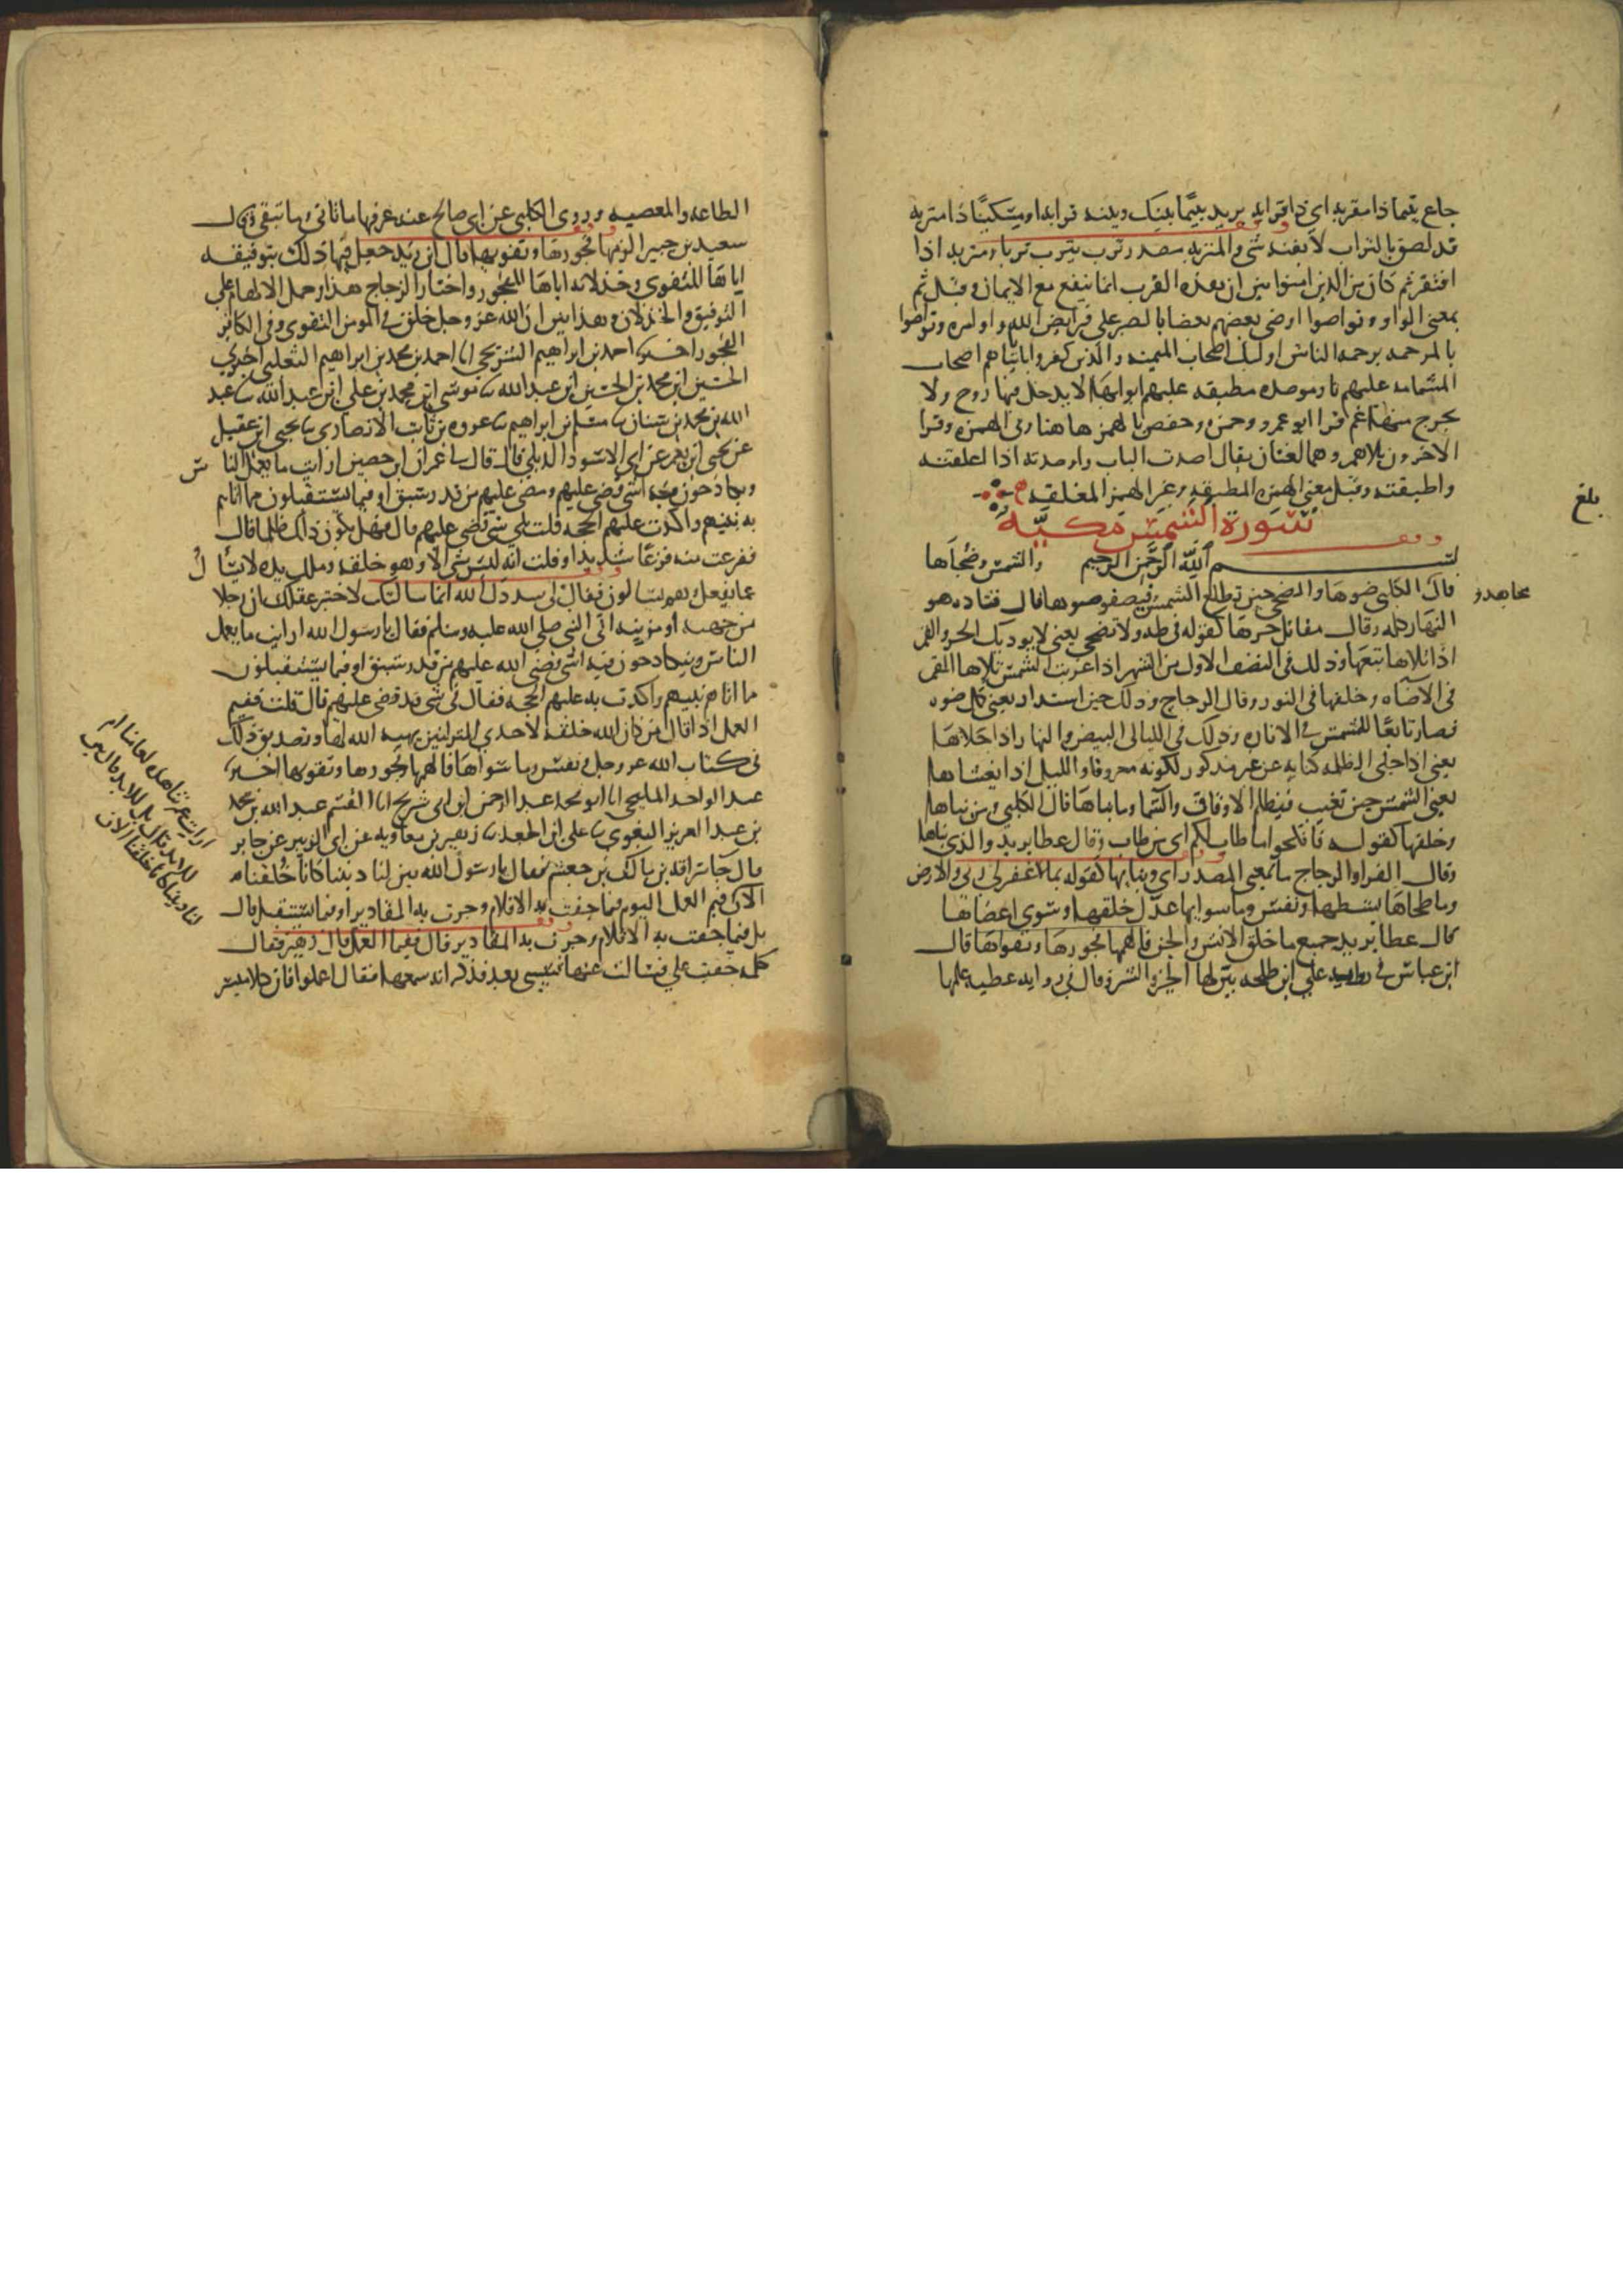 جاع يتيما ذا مقربه اي ذا قرابه يريد يتيما بينك وبينه قرابه او مسكينا ذا متربه
قد لصق بالتراب لا بفقد شي والمتربه مصدر ترب يترب تربا ومتربه اذا
افتقر ثم كان من الذين امنوا بين ان هذه القرب انما تنفع مع الايمان وقيل ثم
بمعنى الواو وتواصوا اوصى بعضهم بعضا بالصبر على فرايض الله واوامره وتواصوا
بالمرحمه برحمه الناس اوليك اصحاب الميمنه والذين كفروا باياتنا هم اصحاب
المشامه عليهم نار موصده مطبقه عليهم ابوابها لا يدخل فيها روح ولا
يخرج منها غم قرا ابو عمرو وحمزه وحفص بالهمز هاهنا وفى الهمزه وقرا
الاخرون بلا همز وهما لغتان يقال اصدت الباب واوصدته اذا اغلقته
واطبقته وقيل معنى الهمز المطبقه وغير الهمز المغلقه
بلغ
سورة الشمس مكيه
بسم الله الرحمن الرحيم والشمس وضحاها
قال الكلبى ضوها والضحى حين تطلع الشمس فيصفو ضوها قال قتاده هو
مجاهد و
النهار كله وقال مقاتل حرها كقوله فى طه ولا تضحى يعنى لا يوذيك الحر والقمر
اذا تلاها تبعها وذلك فى النصف الاول من الشهر اذا غربت الشمس تلاها القمر
فى الاضاه وخلفها فى النور وقال الزجاج وذلك حين استدار يعنى كمل ضوه
فصار تابعا للشمس فى الاناره وذلك فى الليالى البيض والنهار اذا جلاها
يعنى اذا جلى الظلمه كنايه عن غير مذكور لكونه معروفا والليل اذا يغشاها
يعنى الشمس حين تغيب فيظلم الافاق والسما وما بناها قال الكلبى ومن بناها
وخلقها كقوله فانكحوا ما طاب لكم اى من طاب وقال عطا يريد والذى بناها
وقال الفرا والزجاج ما بمعنى المصدر اى وبنايها كقوله بما غفر لى ربى والارض
وما طحاها بسطها ونفس وما سواها عدل خلقها وسوى اعضاها
قال عطا يريد جميع ما خلق الانس والجن فالهمها فجورها وتقواها قال
ابن عباس فى روايه على ابن طلحه بين لها الخير والشر وقال فى روايه عطيه علمها
الطاعه والمعصيه وروى الكلبى عن ابى صالح عنه عرفها ما تاتى وما تتقى وقال
سعيد بن جبير الزمها فجورها وتقويها قال ابن زيد جعل فيها ذلك بتوفيقه
اياها للتقوى وخذلانه اياها للفجور واختار الزجاج هذا وحمل الالهام على
التوفيق والخذلان وهذا يبين ان الله عز وجل خلق فى المومن التقوى وفى الكافر
الفجور اخبرنا احمد بن ابراهيم الشريحى انا احمد بن محمد بن ابراهيم الثعلبى اخبرنى
الحسين ابن محمد بن الحسين ابن عبد الله نا موسى ابن محمد بن على ابن عبد الله نا عبد
الله بن محمد بن سنان نا مسلم بن ابراهيم نا عروه بن ثابت الانصارى نا يحيى ابن عقيل
عن يحيى ابن يعمر عن ابى الاسود الديلى قال قال لى عمران ابن حصين ارايت ما يعمل النا
س
ويكادحون فيه اشى قضى عليهم ومضى عليهم من قدر سبق او فيما يستقبلون مما اتاهم
به نبيهم واكدت عليهم الحجه قلت بلى شى قضى عليهم قال فهل يكون ذلك ظلما قال
ففزعت منه فزعا شديدا وقلت انه ليس شى الا وهو خلقه وملك يده لا يسا
ل
عما يفعل وهم يسالون فقال لى سددك الله انما سالتك لاختبر عقلك ان رجلا
من جهينه او مزينه اتى النبى صلى الله عليه وسلم فقال يا رسول الله ارايت ما يعمل
الناس ويتكادحون فيه اشى قضى الله عليهم من قدر سبق او فيما يستقبلون
ما اتاهم نبيهم واكدت به عليهم الحجه فقال فى شى قد قضى عليهم قال قلت ففيم
العمل اذا قال من كان الله خلقه لاحدى المنزلتين يهيه الله لها وتصديق ذلك
فى كتاب الله عز وجل ونفس وما سواها فالهمها فجورها وتقويها اخبرنا
عبد الواحد المليحى انا ابو محمد عبد الرحمن ابن ابى شريح انا ابو القسم عبد الله بن محمد
بن عبد العزيز البغوى نا على ابن الجعد نا زهير بن معاويه عن ابى الزبير عن جابر
قال جا سراقه بن مالك بن جعشم فقال يا رسول الله بين لنا ديننا كانا خلقنا
الان فيم العمل اليوم فيما جفت به الاقلام وجرت به المقادير او فيما يستقبل قال
بل فيما جفت به الاقلام وجرت به المقادير قال ففيم العمل قال زهير فقال
كلمه خفيت على فسالت عنها نسيبى بعد فذكر انه سمعها فقال اعملوا فان كلا ميسر
ارايت عمرتنا هذه لعامنا ام
للابد قال بل للابد قال بين
لنا ديننا كانا خلقنا الان